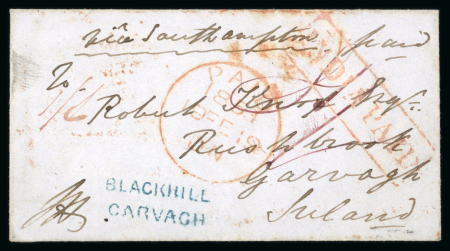 via Southampton. paid
To
Robert Knox Esqr.
Rushbrook
Garvagh
Ireland
PAID
BLACKHILL
GARVAGH